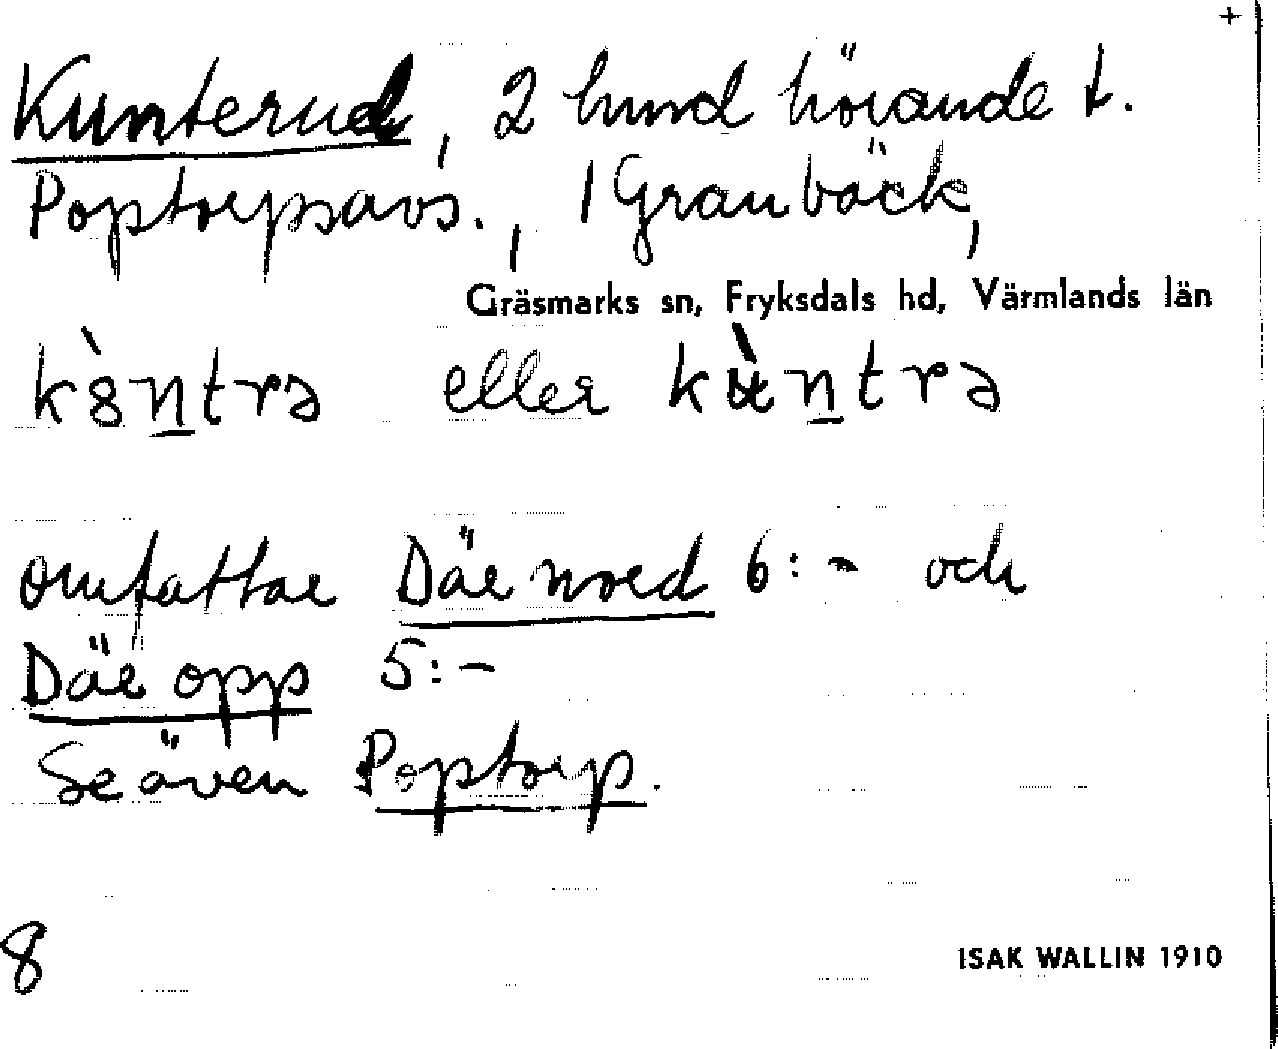 +
Kunterud, 2 hmd hörande t.
Poptorpsavs., 1 Granbäck,
Gräsmarks sn, Fryksdals hd, Värmlands län
eller
omfattar Där nord 6:- och
Där opp 5:-
Se även Poptorp.
8
ISAK WALLIN 1910